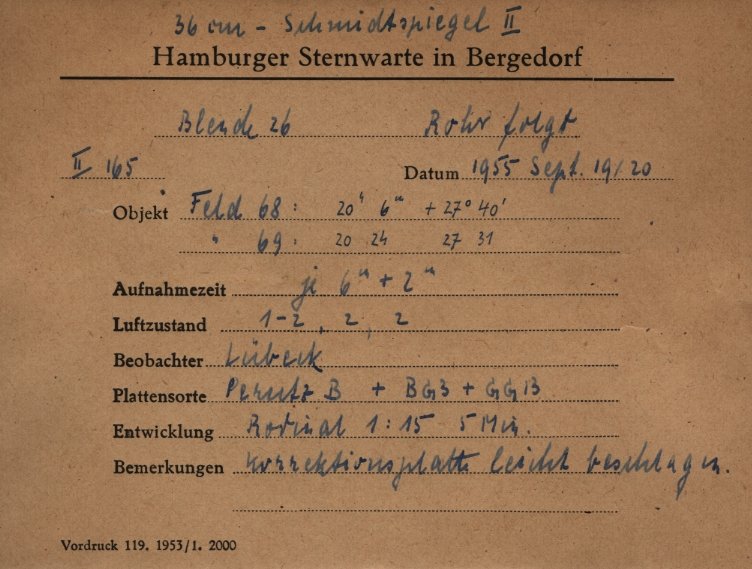 36 cm - Schmidtspiegel II
Hamburger Sternwarte in Bergedorf
Blende 26 Rohr folgt
II 165 Datum 1955 Sept. 19/20
Objekt Feld 68: 20h 6m +27° 40'
" 69: 20 24 27 31
Aufnahmezeit je 6m + 2m
Luftzustand 1-2, 2, 2
Beobachter Lübeck
Plattensorte Perutz B + BG3 + GG13
Entwicklung Rodinal 1:15 5 Min.
Bemerkungen Korrektionsplatte leicht beschlagen.
Vordruck 119. 1953/1. 2000